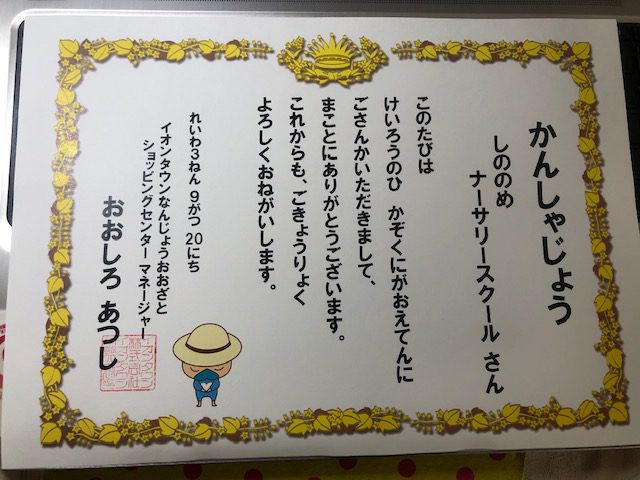 かんしゃじょう
しののめ
ナーサリースクール さん
このたびは
けいろうのひ かぞくにがおえてんに
ごさんかいただきまして、
まことにありがとうございます。
これからも、ごきょうりょく
よろしくおねがいします。
れいわ3ねん 9がつ 20にち
イオンタウンなんじょうおおざと
ショッピングセンター マネージャー
おおしろ あつし